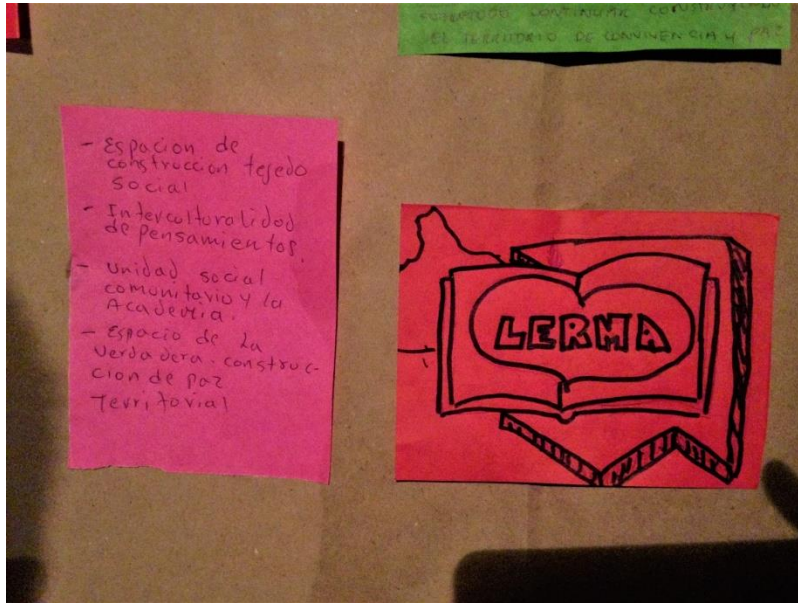 CONTINUAR CONSTRUYENDO
EL TERRITORIO DE CONVIVENCIA Y PAZ
- Espacion de
construccion tejedo
social
- Interculturalidad
de pensamientos.
- Unidad social
comunitario y la
Academia.
- Espacio de La
verdadera construc-
cion de paz
Territorial
LERMA